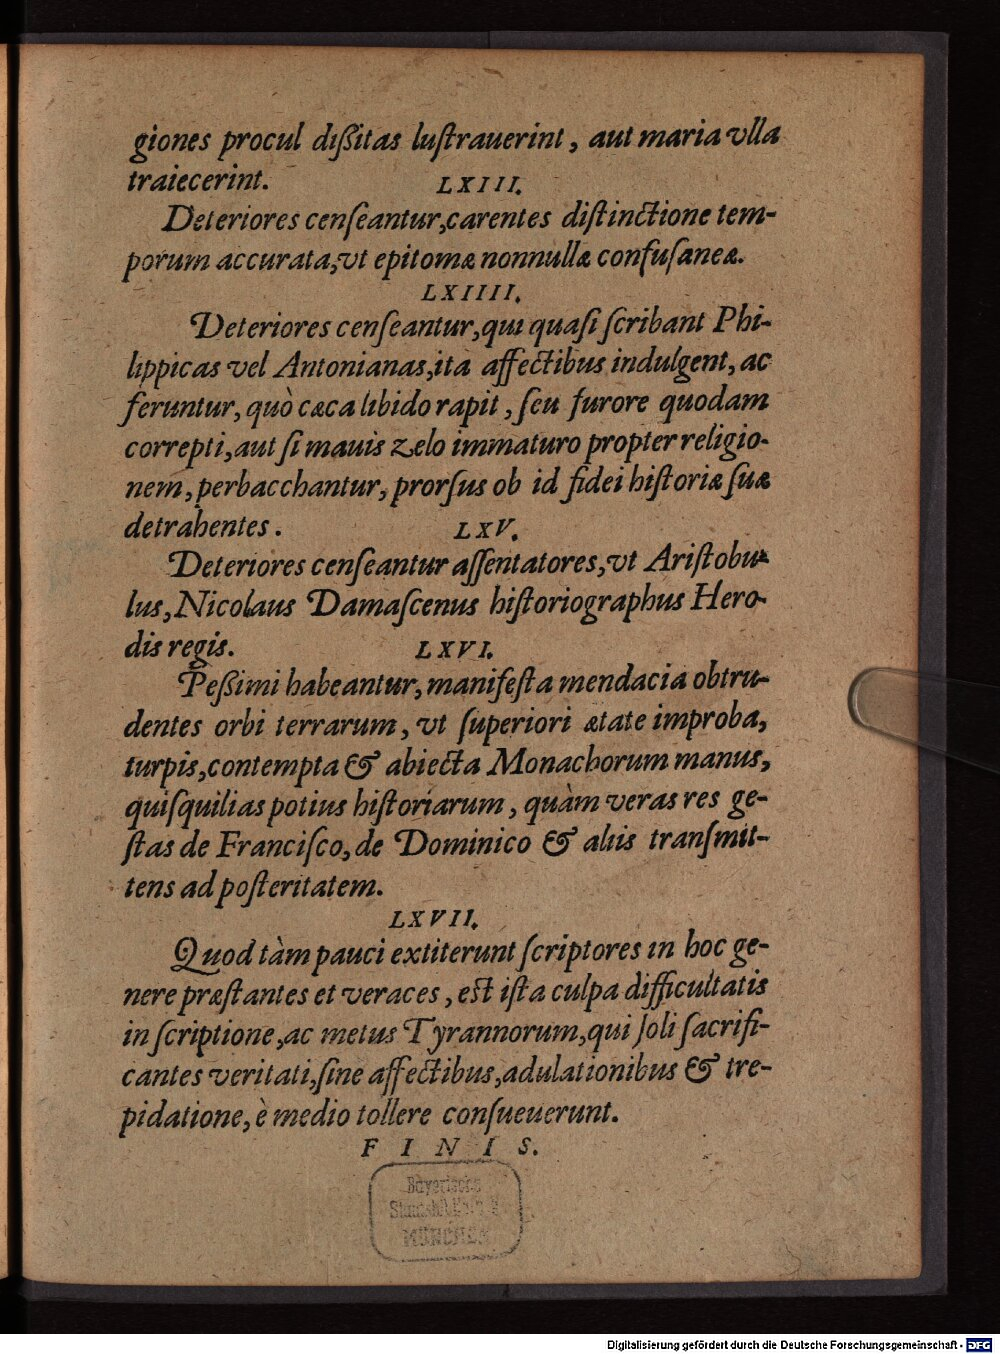 giones procul dißitas luſtrauerint, aut maria vlla
traiecerint.
LXIII.
Deteriores cenſeantur, carentes diſtinctione tem-
porum accurata, vt epitomæ nonnullæ confuſaneæ.
LXIIII.
Deteriores cenſeantur, qui quaſi ſcribant Phi-
lippicas vel Antonianas, ita affectibus indulgent, ac
feruntur, quò cæca libido rapit, ſeu furore quodam
correpti, aut ſi mauis zelo immaturo propter religio-
nem, perbacchantur, prorſus ob id fidei hiſtoriæ ſuæ
detrahentes.
LXV.
Deteriores cenſeantur aſſentatores, vt Ariſtobu-
lus, Nicolaus Damaſcenus hiſtoriographus Hero-
dis regis.
LXVI.
Peßimi habeantur, manifeſta mendacia obtru-
dentes orbi terrarum, vt ſuperiori ætate improba,
turpis, contempta & abiecta Monachorum manus,
quiſquilias potius hiſtoriarum, quàm veras res ge-
ſtas de Franciſco, de Dominico & aliis tranſmit-
tens ad poſteritatem.
LXVII.
Quod tàm pauci extiterunt ſcriptores in hoc ge-
nere præſtantes et veraces, eſt iſta culpa difficultatis
in ſcriptione, ac metus Tyrannorum, qui ſoli ſacrifi-
cantes veritati, ſine affectibus, adulationibus & tre-
pidatione, è medio tollere conſueuerunt.
FINIS.
Bayerische
Staatsbibliothek
MÜNCHEN
Digitalisierung gefördert durch die Deutsche Forschungsgemeinschaft - DFG